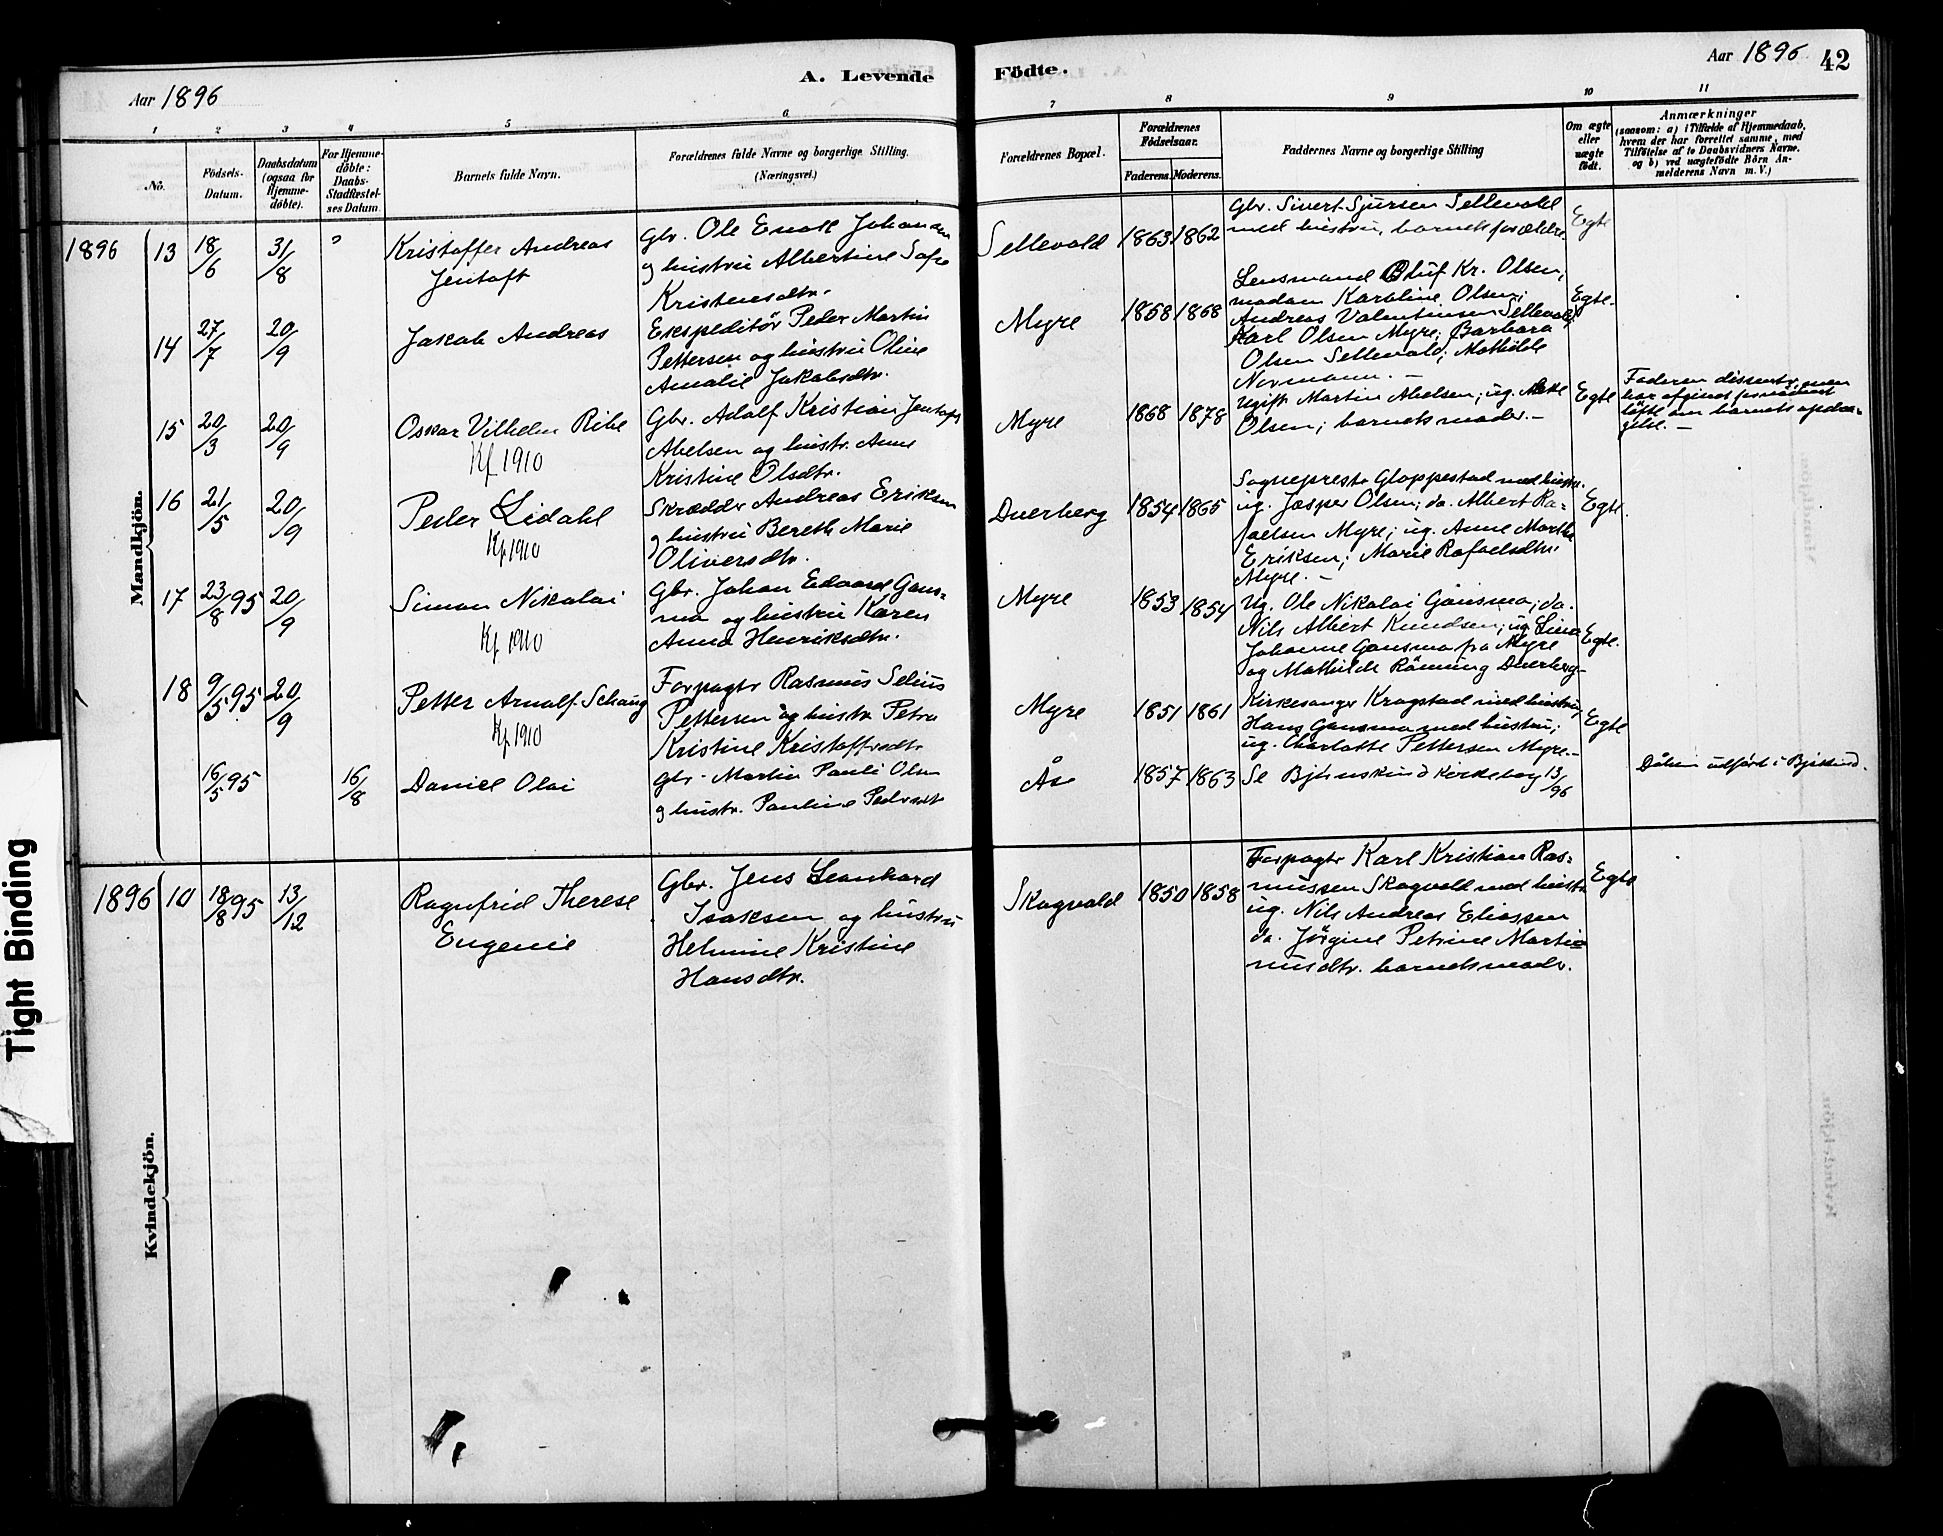 Aar 1896
A. Levende
Födte.
Aar 1896
42
1
2
3
4
5
6
7
8
9
10
11
No.
Födsels-
Datum.
Daabsdatum
(ogsaa for
Hjemme-
döbte).
For Hjemme-
döbte:
Daabs-
Stadfæstel-
ses Datum
Barnets fulde Navn.
Forældrenes fulde Navne og borgerlige Stilling.
(Næringsvei.)
Forældrenes Bopæl.
Forældrenes
Födselsaar.
Faderens.
Moderens.
Faddernes Navne og borgerlige Stilling
Om ægte
eller
uægte
födt.
Anmærkninger
(saasom: a) i Tilfælde af Hjemmedaab,
hvem der har forrettet samme, med
Tilföielse af to Daabsvidners Navne.
og b) ved uægtefödte Börn An-
melderens Navn m. V.)
Mandkjön.
1896
13
18/6
31/8
Kristoffer Andreas
Jentoft
Gbr. Ole Enok Johansen
og hustru Albertine Sofie
Kristensdtr.
Sellevold
1863
1862
Gbr. Sivert Sjursen Sellevold
med hustru, barnets forældre
Egte
14
27/7
20/9
Jakob Andreas
Ekspeditör Peder Martin
Pettersen og hustru Oline
Amalie Jakobsdtr.
Myre
1858
1868
Lensmand Oluf Kr. Olsen,
madam Karoline Olsen;
Andreas Valentinsen Sellevold;
Karl Olsen Myre; Barbara
Olsen Sellevold; Mathilde
Normann. —
Egte.
15
20/3
20/9
Oskar Vilhelm Ribe
Kf 1910
Gbr. Adolf Kristian Jentoft
Abelsen og hustr. Anne
Kristine Olsdtr.
Myre
1868
1878
Ugift Martin Abelsen; ug.
Olsen; barnets moder. —
Egte
Faderen dissenter, men
har afgivet
löfte om barnets opdra-
gelse. —
16
21/5
20/9
Peder Lidahl
Kf 1910
Skrædder Andreas Eriksen
og hustru Bereth Marie
Oliversdtr.
Duerberg
1854
1865
Sogneprest Gloppestad med hustru.
ug. Jasper Olsen; do. Albert Ra-
faelsen Myre; ug. Anne Marthe
Eriksen; Marie Rafaelsdtr.
Myre. —
Egte.
17
23/8 95
20/9
Simon Nikolai
Kf 1910
Gbr. Johan Edvard Gaus-
ma og hustru Karen
Anna Henriksdtr.
Myre
1853
1854
Ug. Ole Nikolai Gausma; do.
Nils Albert Knudsen; ug. Lina
Johanne Gausma fra Myre
og Mathilde Rönning Duerberg. —
Egte.
18
9/5 95
20/9
Petter Arnolf Schaug
Kf 1910
Forpagtr Rasmus Selius
Pettersen og hustr. Petra
Kristine Kristoffersdtr.
Myre
1851
1861
Kirkesanger Krogstad med hustru;
Hans Gausma med hustru;
ug. Charlotte Pettersen Myre. —
Egte
16/5 95
16/8
Daniel Olai
Gbr. Martin Pauli Olsen
og hustr. Pauline Pedersdtr
Ås
1857
1863
Se Björnskind Kirkebog 13/96
Dåben udfört i Bjskind.
Kvindekjön.
1896
10
18/8 95
13/12
Ragnfrid Therese
Eugenie
Gbr. Jens Leonhard
Isaksen og hustru
Helmine Kristine
Hansdtr.
Skogvold
1850
1858
Forpagtr Karl Kristian Ras-
mussen Skogvold med hustr.
ug. Nils Andreas Eliassen
do. Jörgine Petrine Marti-
nusdtr. barnets moder.
Egte
Tight Binding